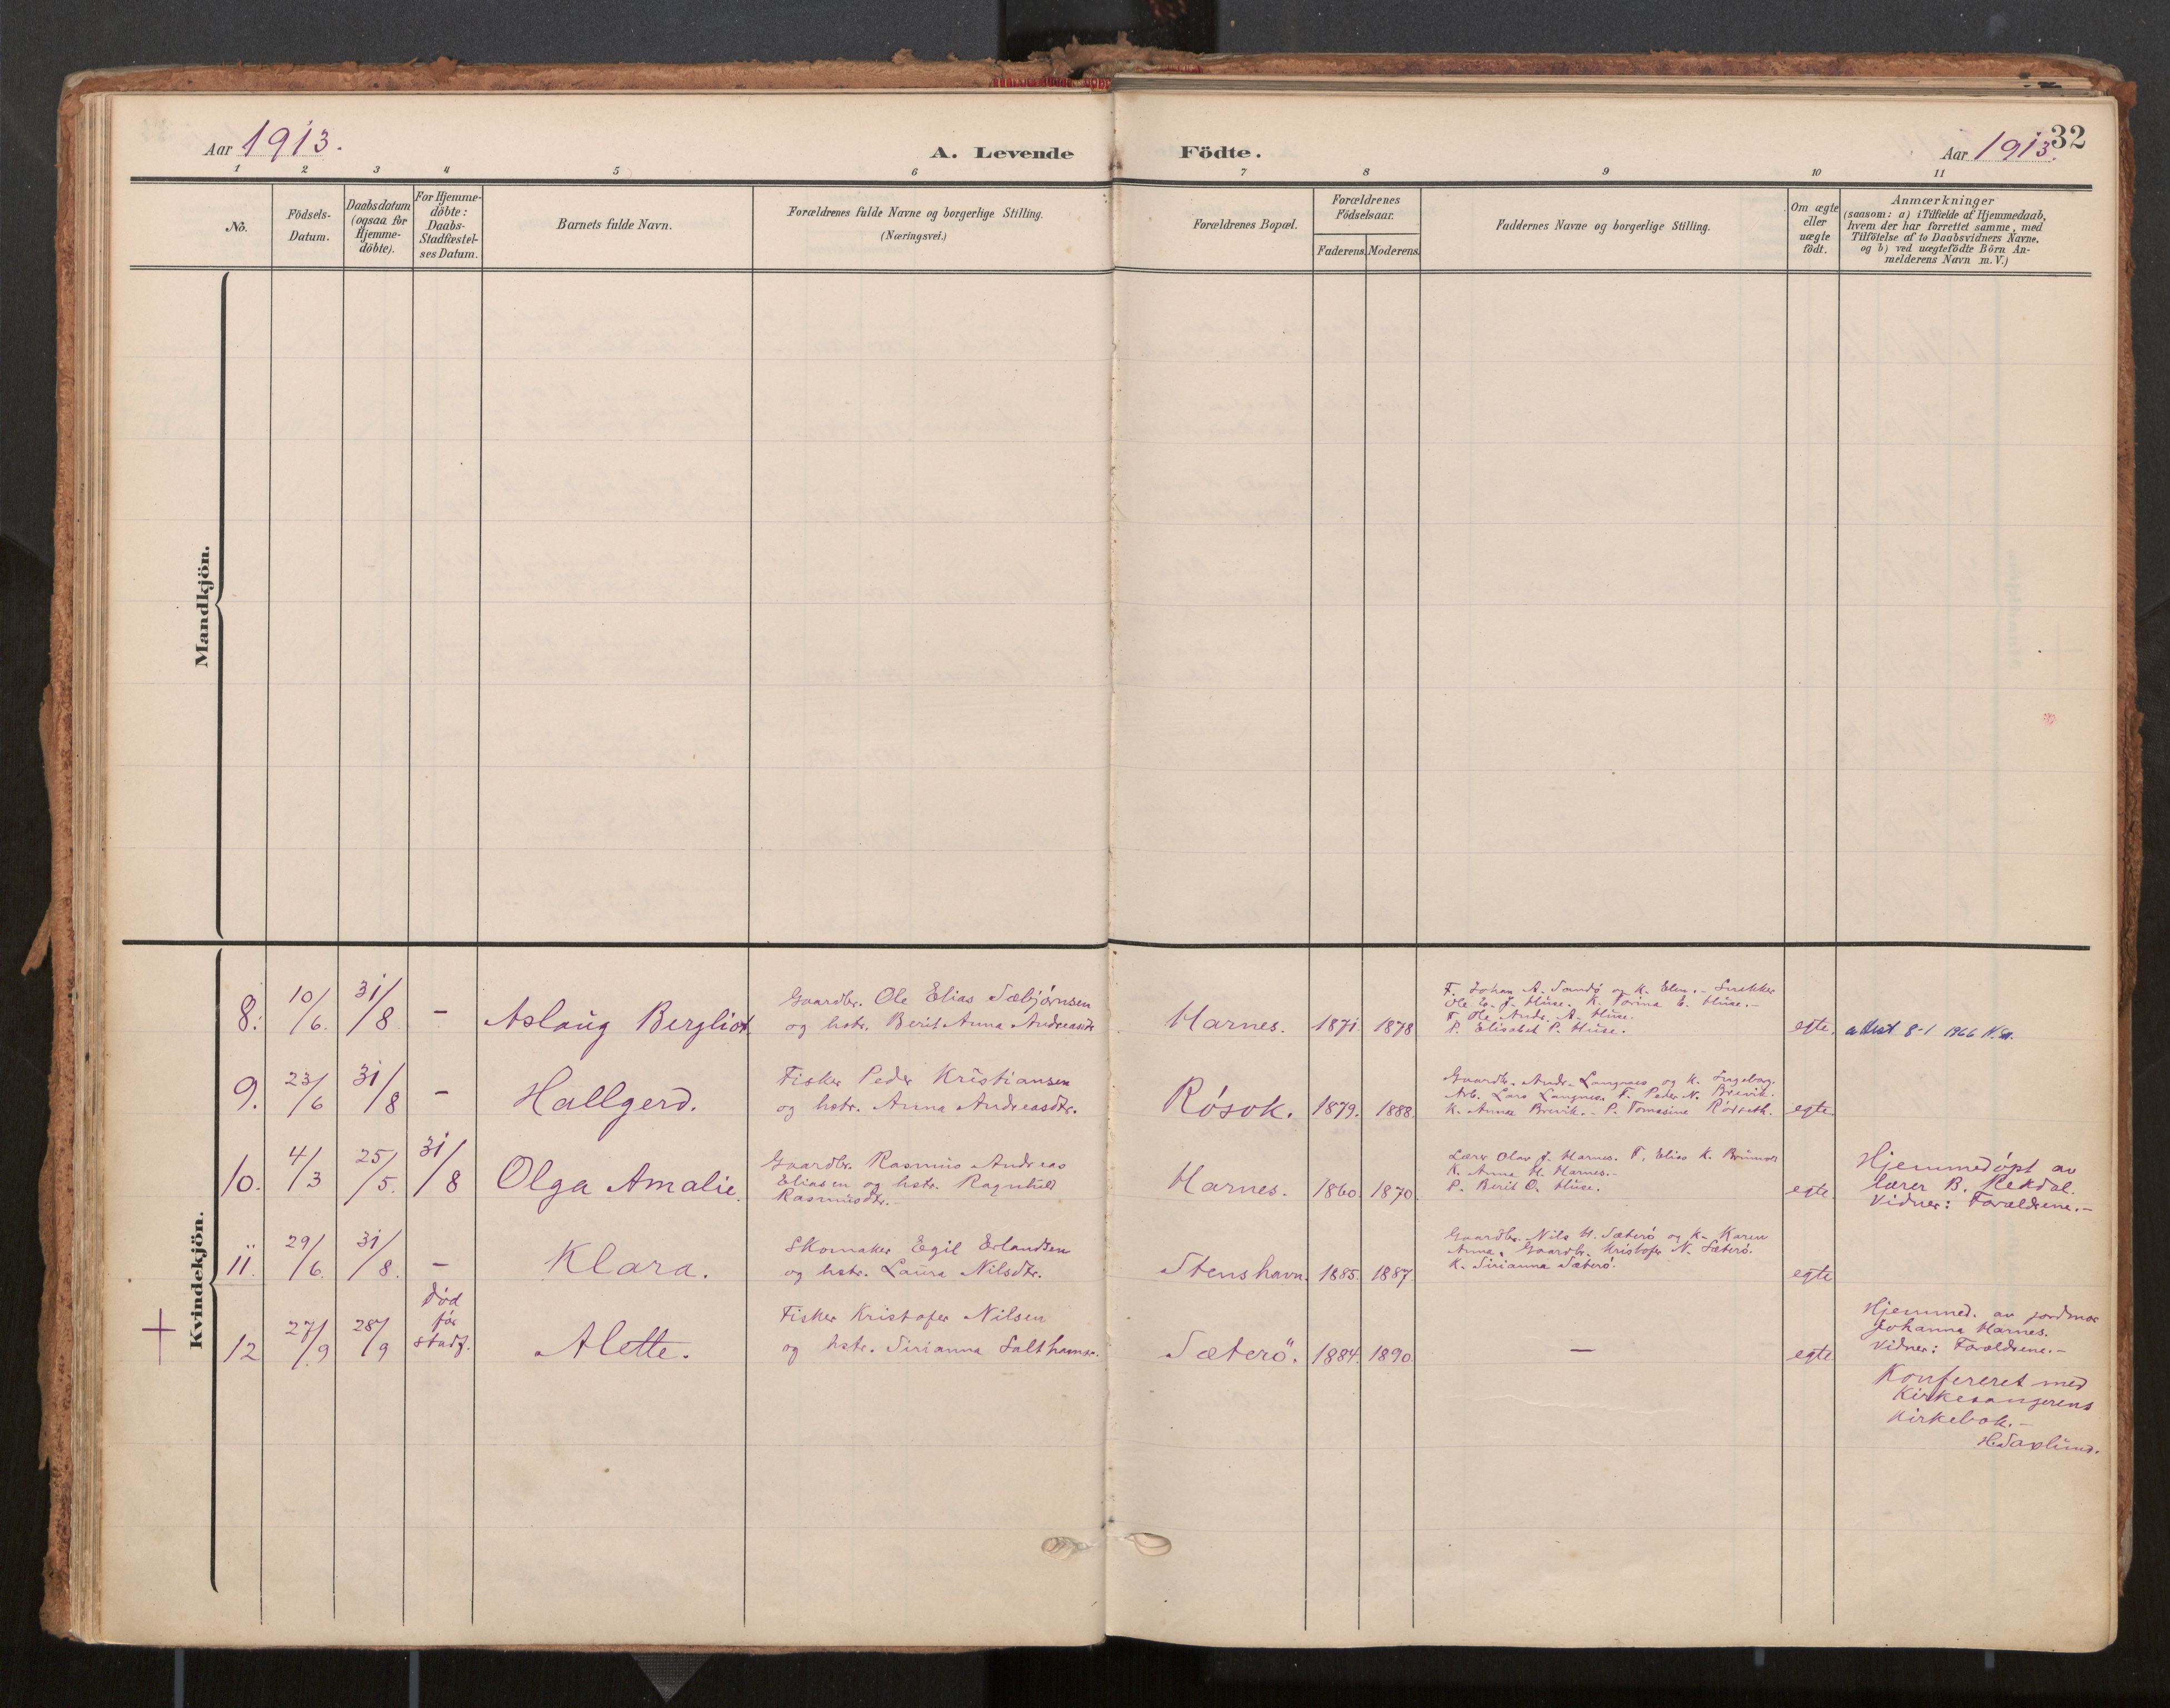 Aar 1913.
A. Levende Födte.
Aar 1913.
32
1 2 3 4 5 6 7 8 9 10 11
No.
Födsels-
Datum.
Daabsdatum
(ogsaa for
Hjemme-
döbte).
For Hjemme-
döbte:
Daabs-
Stadfæstel-
ses Datum.
Barnets fulde Navn.
Forældrenes fulde Navne og borgerlige Stilling.
(Næringsvei.)
Forældrenes Bopæl.
Forældrenes
Födselsaar.
Faderens. Moderens.
Faddernes Navne og borgerlige Stilling.
Om ægte
eller
uægte
födt.
Anmærkninger
(saasom: a) i Tilfælde af Hjemmedaab,
hvem der har forrettet samme, med
Tilföielse af to Daabsvidners Navne,
og b) ved uægtefödte Börn An-
melderens Navn m. V.)
Mandkjön.
Kvindekjön.
8. 10/6. 31/8 - Aslaug Bergliot.
Gaardbr. Ole Elias Sæbjørnsen
og hstr. Berit Anna Andreasdtr
Harnes. 1871. 1878
F. Johan A. Sandø og K. Elen. - Snekker
Ole E. J. Huse. K. Torina E. Huse. -
F. Ole Andr. A. Huse.
P. Elisabet P. Huse.
egte. attest 8-1 1966 N.a.
9. 23/6 31/8 - Hallgerd.
Fisker Peder Kristiansen
og hstr. Anna Andreasdtr.
Røsok. 1879. 1888.
Gaardbr. Andr. Langnes og K. Ingeborg.
Arb. Lars Langnes. F. Peder N. Brevik.
K. Anna Brevik. - P. Tomasine Rørseth.
egte
10. 4/3 25/5. 31/8 Olga Amalie.
Gaardbr. Rasmus Andreas
Eliasen og hstr. Ragnhild
Rasmusdtr. -
Harnes. 1860. 1870
Lærer Olav J. Harnes. F. Elias K.
K. Anna H. Harnes. -
P. Berit O. Huse.
egte
Hjemmedøpt av
lærer B. Rekdal.
Vidner: Forældrene. -
11. 29/6. 31/8. - Klara.
Skomaker Egil Erlandsen
og hstr. Laura Nilsdtr.
Stenshavn. 1885. 1887
Gaardbr. Nils H. Sæterø og K. Karen
Anna. Gaardbr. Kristofer N. Sæterø.
K. Sirianna Sæterø.
egte
12 27/9 28/9 død
før
stadf.
Alette.
Fisker Kristofer Nilsen
og hstr. Sirianna Salthamr.
Sæterö. 1884. 1890. - egte
Hjemmed. av jordmor
Johanna Harnes.
Vidner: Forældrene. -
Konfereret med
Kirkesangerens
Kirkebok. -